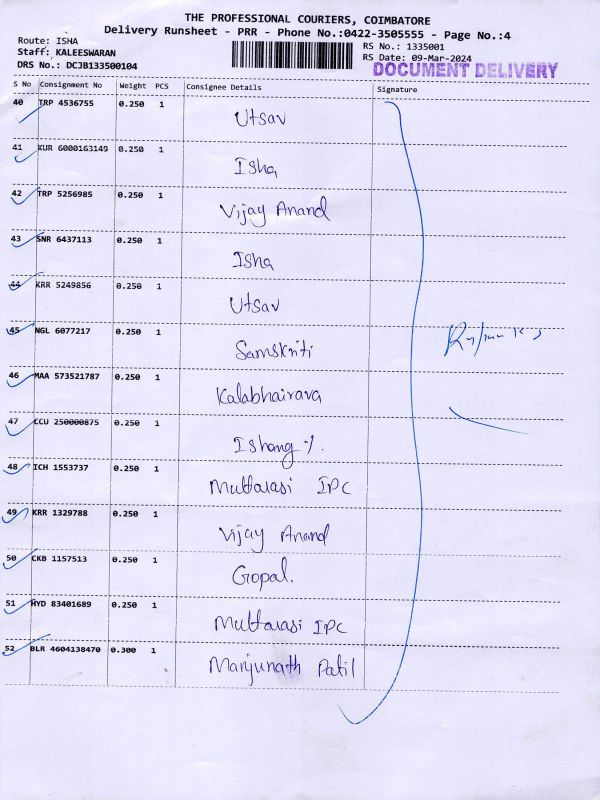 THE PROFESSIONAL COURIERS, COIMBATORE
Delivery Runsheet - PRR - Phone No.:0422-3505555 - Page No.:4
Route: ISHA
RS No.: 1335001
Staff: KALEESWARAN
RS Date: 09-Mar-2024
DRS No.: DCJB133500104
DOCUMENT DELIVERY
S No Consignment No Weight PCS Consignee Details Signature
40 TRP 4536755 0.250 1 Utsav
41 KUR 6000163149 0.250 1 Isha
42 TRP 5256985 0.250 1 Vijay Anand
43 SNR 6437113 0.250 1 Isha
44 KRR 5249856 0.250 1 Utsav
45 NGL 6077217 0.250 1 Samskriti
46 MAA 573521787 0.250 1 Kalabhairava
47 CCU 250000875 0.250 1 Ishang
48 ICH 1553737 0.250 1 Muttarasi IPC
49 KRR 1329788 0.250 1 Vijay Anand
50 CKB 1157513 0.250 1 Gopal.
51 HYD 83401689 0.250 1 Muttarasi IPC
52 BLR 4604138470 0.300 1 Manjunath Patil